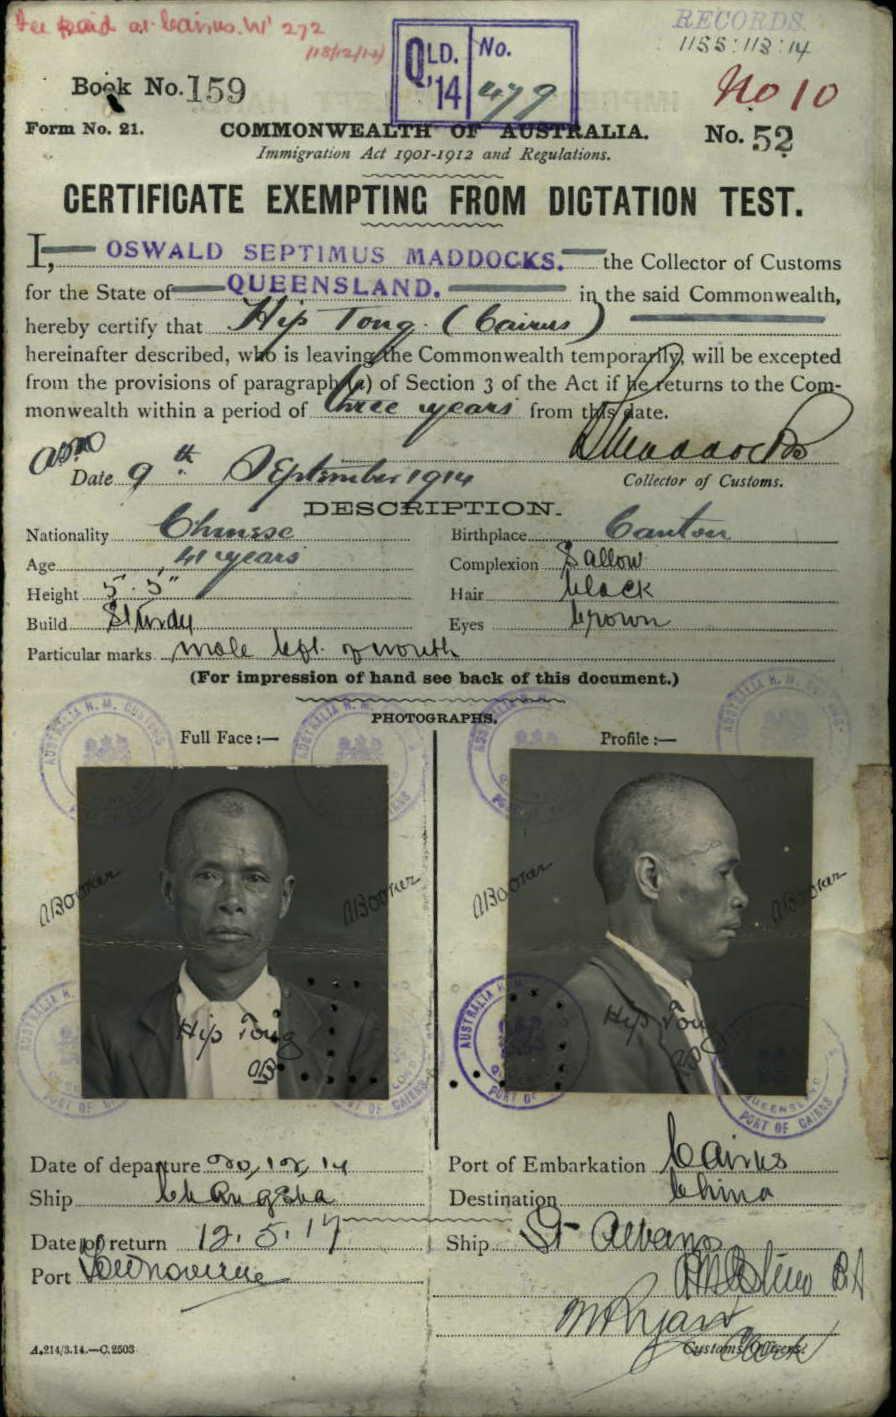 Fee paid at Cairns. No 272
RECORDS.
1155:113:14
QLD. No.
'14 479
Book No. 159
No 10
Form No. 21.
COMMONWEALTH OF AUSTRALIA.
No. 52
Immigration Act 1901-1912 and Regulations.
CERTIFICATE EXEMPTING FROM DICTATION TEST.
I, OSWALD SEPTIMUS MADDOCKS. the Collector of Customs
for the State of QUEENSLAND. in the said Commonwealth,
hereby certify that Hip Tong (Cairns)
hereinafter described, who is leaving the Commonwealth temporarily, will be excepted
from the provisions of paragraph (a) of Section 3 of the Act if he returns to the Com-
monwealth within a period of three years from this date.
Maddocks
Date 9th September 1914
Collector of Customs.
DESCRIPTION.
Nationality Chinese Birthplace Canton
Age 41 years Complexion Sallow
Height 5' 5" Hair black
Build Sturdy Eyes brown
Particular marks mole left of mouth
(For impression of hand see back of this document.)
PHOTOGRAPHS.
Full Face:— Profile:—
Hip Tong
Hip Tong
AUSTRALIA H. M. CUSTOMS
QUEENSLAND
PORT OF CAIRNS
Date of departure 20/12/14 Port of Embarkation Cairns
Ship Changsha Destination China
Date of return 12.5.17 Ship St Albans
Port Townsville
M Ryan
Customs Officers.
A.214/3.14.—C.2503